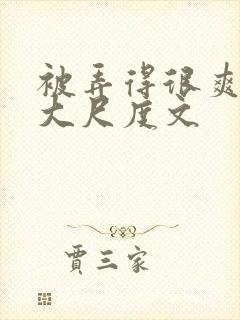 被弄得很爽
大尺度文
贾三家